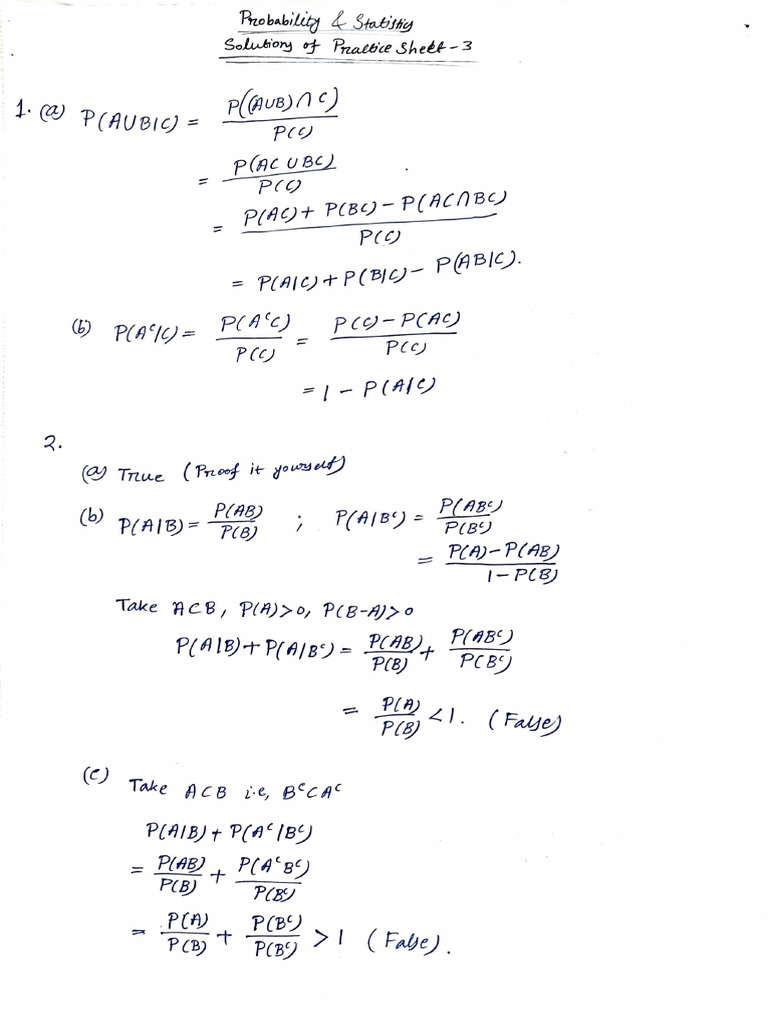 Probability & Statistics
Solutions of Practice Sheet-3
1. (a) P(A∪B|C) = P((A∪B)∩C) / P(C)
= P(AC ∪ BC) / P(C)
= P(AC) + P(BC) - P(AC∩BC) / P(C)
= P(A|C) + P(B|C) - P(AB|C).
(b) P(Aᶜ|C) = P(AᶜC) / P(C) = P(C) - P(AC) / P(C)
= 1 - P(A|C)
2.
(a) True (Proof it yourself)
(b) P(A|B) = P(AB) / P(B) ; P(A|Bᶜ) = P(ABᶜ) / P(Bᶜ)
= P(A) - P(AB) / 1 - P(B)
Take A⊂B, P(A)>0, P(B-A)>0
P(A|B) + P(A|Bᶜ) = P(AB) / P(B) + P(ABᶜ) / P(Bᶜ)
= P(A) / P(B) < 1. (False)
(c) Take A⊂B i.e, Bᶜ⊂Aᶜ
P(A|B) + P(Aᶜ|Bᶜ)
= P(AB) / P(B) + P(AᶜBᶜ) / P(Bᶜ)
= P(A) / P(B) + P(Bᶜ) / P(Bᶜ) > 1 (False).